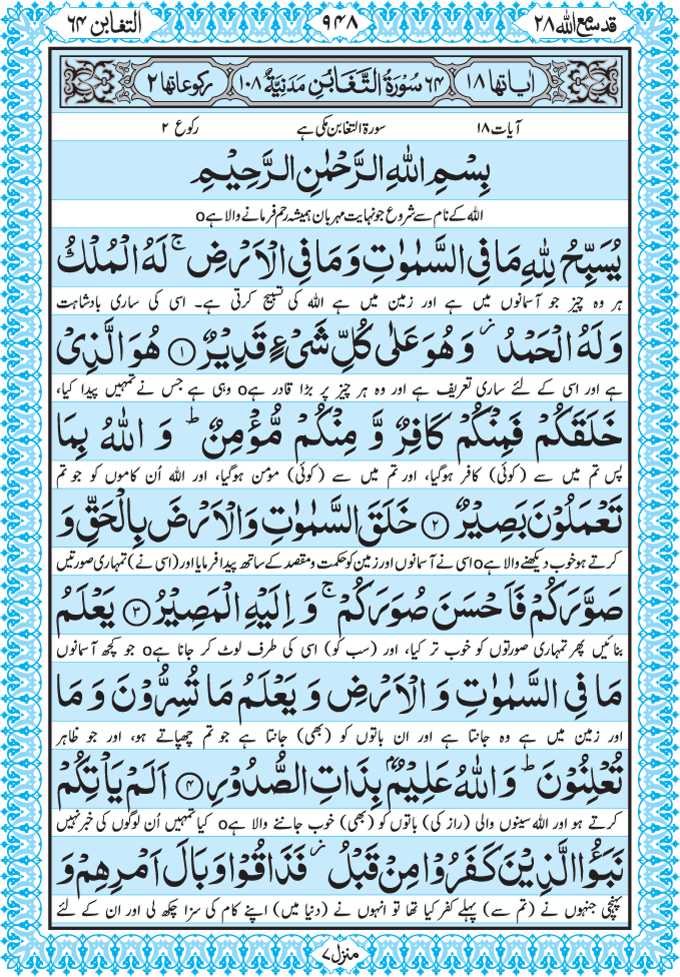 قد سمع الله ۲۸ ۹۴۸ التغابن ۶۴
اٰیاتها ۱۸ ۶۴ سُوْرَةُ التَّغَابُنِ مَدَنِیَّةٌ ۱۰۸ رکوعاتها ۲
آیات ۱۸ سورۃ التغابن مکی ہے رکوع ۲
بِسْمِ اللّٰهِ الرَّحْمٰنِ الرَّحِیْمِ
اللہ کے نام سے شروع جو نہایت مہربان ہمیشہ رحم فرمانے والا ہےo
یُسَبِّحُ لِلّٰهِ مَا فِی السَّمٰوٰتِ وَ مَا فِی الْاَرْضِ ۚ لَهُ الْمُلْكُ
ہر وہ چیز جو آسمانوں میں ہے اور زمین میں ہے اللہ کی تسبیح کرتی ہے۔ اسی کی ساری بادشاہت
وَ لَهُ الْحَمْدُ ؗ وَ هُوَ عَلٰی كُلِّ شَیْءٍ قَدِیْرٌ ۝۱ هُوَ الَّذِیْ
ہے اور اسی کے لئے ساری تعریف ہے اور وہ ہر چیز پر بڑا قادر ہےo وہی ہے جس نے تمہیں پیدا کیا،
خَلَقَكُمْ فَمِنْكُمْ كَافِرٌ وَّ مِنْكُمْ مُّؤْمِنٌ ؕ وَ اللّٰهُ بِمَا
پس تم میں سے (کوئی) کافر ہوگیا، اور تم میں سے (کوئی) مؤمن ہوگیا، اور اللہ اُن کاموں کو جو تم
تَعْمَلُوْنَ بَصِیْرٌ ۝۲ خَلَقَ السَّمٰوٰتِ وَ الْاَرْضَ بِالْحَقِّ وَ
کرتے ہو خوب دیکھنے والا ہےo اسی نے آسمانوں اور زمین کو حکمت و مقصد کے ساتھ پیدا فرمایا اور (اسی نے) تمہاری صورتیں
صَوَّرَكُمْ فَاَحْسَنَ صُوَرَكُمْ ۚ وَ اِلَیْهِ الْمَصِیْرُ ۝۳ یَعْلَمُ
بنائیں پھر تمہاری صورتوں کو خوب تر کیا، اور (سب کو) اسی کی طرف لوٹ کر جانا ہےo جو کچھ آسمانوں
مَا فِی السَّمٰوٰتِ وَ الْاَرْضِ وَ یَعْلَمُ مَا تُسِرُّوْنَ وَ مَا
اور زمین میں ہے وہ جانتا ہے اور ان باتوں کو (بھی) جانتا ہے جو تم چھپاتے ہو، اور جو ظاہر
تُعْلِنُوْنَ ؕ وَ اللّٰهُ عَلِیْمٌۢ بِذَاتِ الصُّدُوْرِ ۝۴ اَلَمْ یَاْتِكُمْ
کرتے ہو اور اللہ سینوں والی (راز کی) باتوں کو (بھی) خوب جاننے والا ہےo کیا تمہیں اُن لوگوں کی خبر نہیں
نَبَؤُا الَّذِیْنَ كَفَرُوْا مِنْ قَبْلُ ؗ فَذَاقُوْا وَبَالَ اَمْرِهِمْ وَ
پہنچی جنہوں نے (تم سے) پہلے کفر کیا تھا تو انہوں نے (دنیا میں) اپنے کام کی سزا چکھ لی اور ان کے لئے
منزل ۷